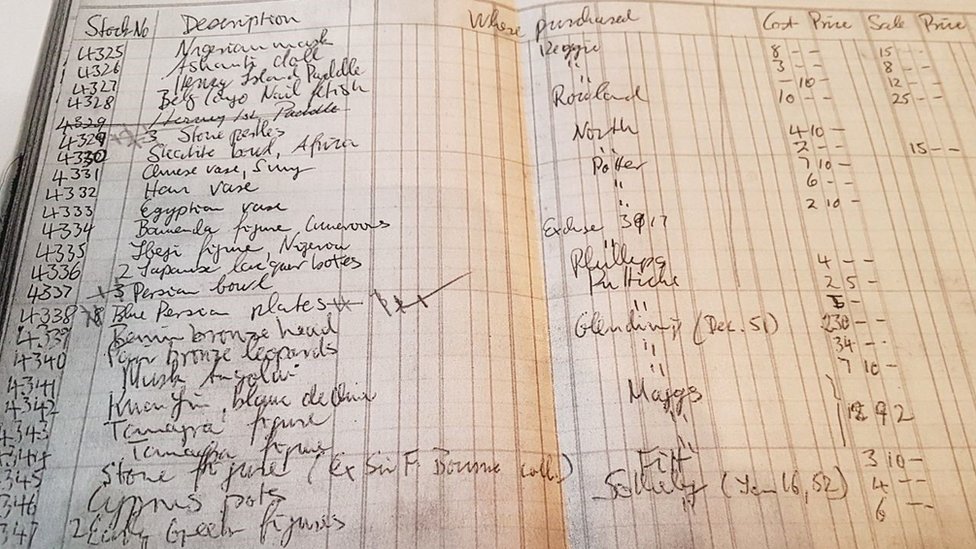 Stock No Description Where purchased Cost Price Sale Price
4325 Nigerian mask Reggie 8 - - 15 - -
4326 Ashanti doll " 3 - - 8 - -
4327 Hervey Island Paddle " - 10 - 12 - -
4328 Belg Congo Nail fetish Rowland 10 - - 25 - -
4329 Hervey Isl. Paddle
4329 3 Stone pestles North 4 10 -
4330 Steatite bowl, Africa " 2 - - 15 - -
4331 Chinese vase, Sung Potter 7 10 -
4332 Han vase " 6 - -
4333 Egyptian vase " 2 10 -
4334 Bamenda figure Cameroons Exchse 3917
4335 Ibeji figure, Nigeria "
4336 2 Japanese lacquer boxes Phillips 4 - -
4337 3 Persian bowl Putticks 2 5 -
4338 8 Blue Persian plates "
4339 Benin bronze head Glendining (Dec. 51) 230 - -
4340 Pair Bronze leopards " 34 - -
4341 Mask Angola " 7 10 -
4342 Kuan Yin, blanc de Chine Maggs
4343 Tanagra figure " 12 9 2
4344 Tanagra figure "
4345 Stone figure (Ex Sir F. Bourne coll.) 3 10 -
4346 Cyprus pots Sotheby (Jan 16, 52) 4 - -
4347 2 Early Greek figures " 6 - -